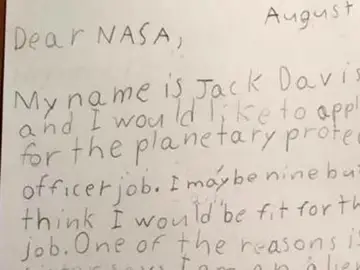 August
Dear NASA,
My name is Jack Davis
and I would like to appl
for the planetary prote
officer job. I may be nine bu
think I would be fit for th
job. One of the reasons is